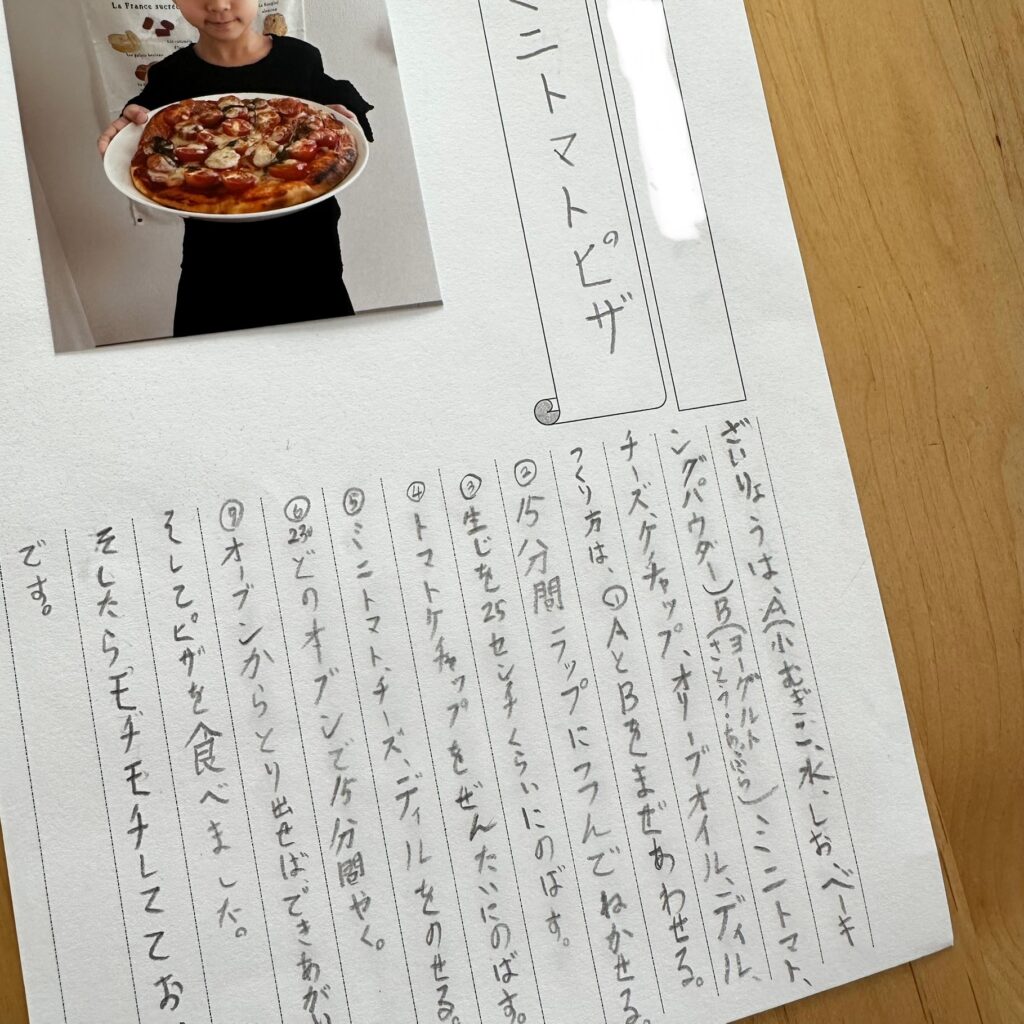 ミニトマトピザ
ざいりょうは、A(小むぎこ、水、しお、ベーキ
ングパウダー)B(ヨーグルト さとう・あぶら)、ミニトマト、
チーズ、ケチャップ、オリーブオイル、ディル、
つくり方は、①AとBをまぜあわせる。
②15分間ラップにつつんでねかせる。
③生じを25センチくらいにのばす。
④トマトケチャップをぜんたいにのばす。
⑤ミニトマト、チーズ、ディルをのせる。
⑥230どのオーブンで15分間やく。
⑦オーブンからとり出せば、できあがり
そしてピザを食べました。
そしたら、モチモチしてお
です。
La France sucrée